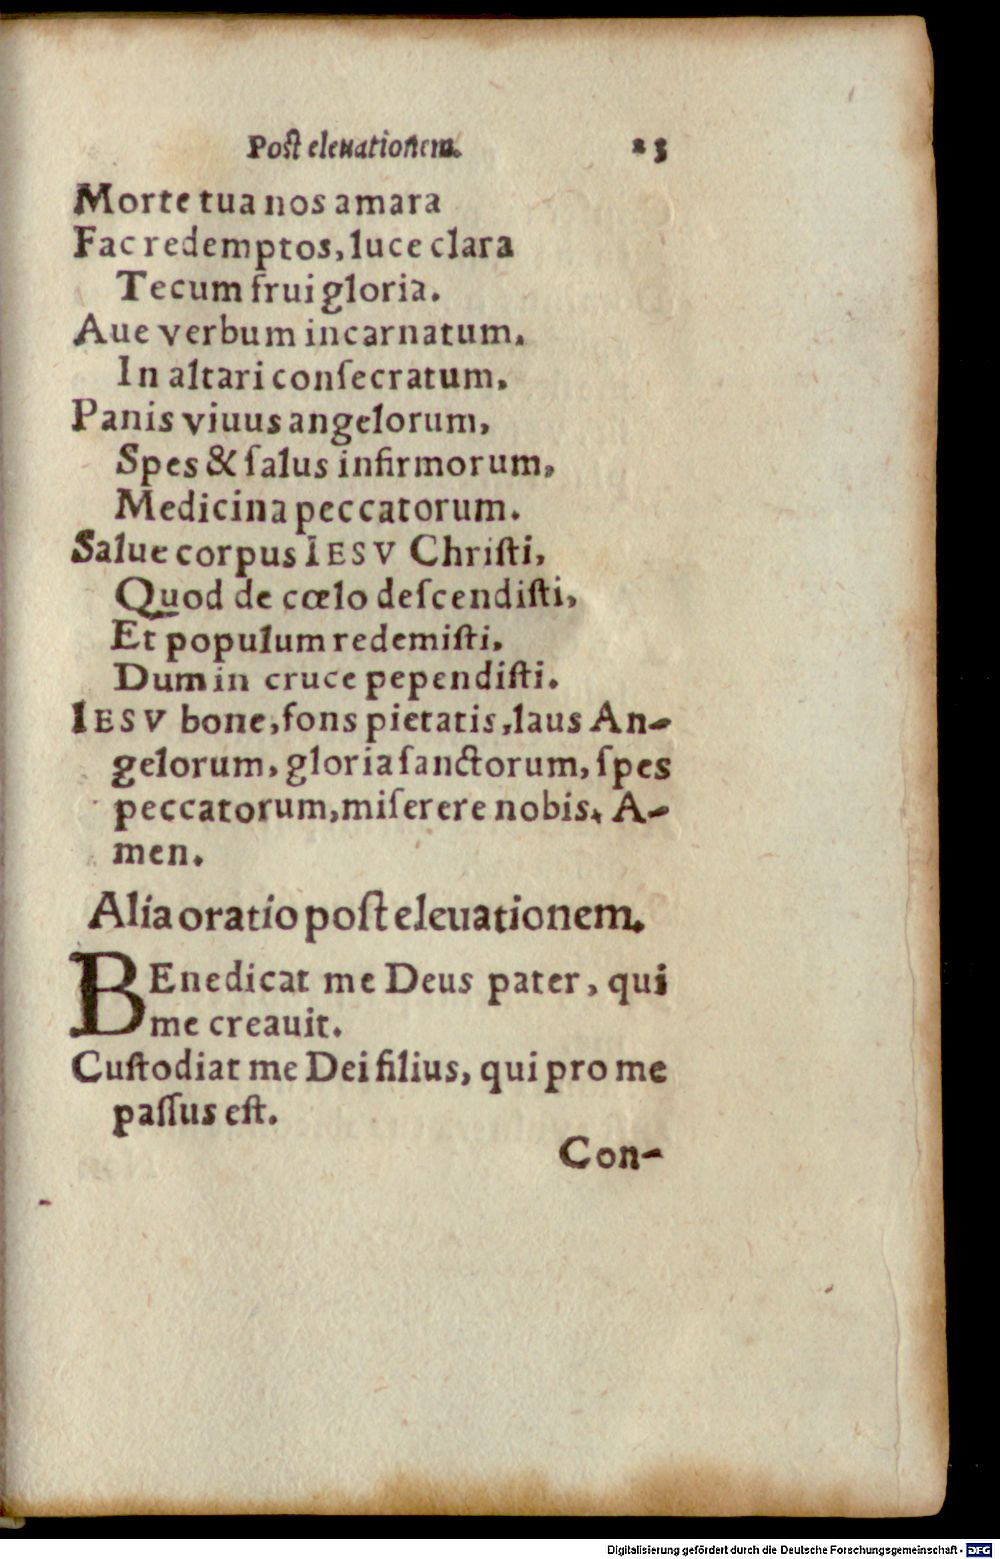 Post eleuationem. 23
Morte tua nos amara
Fac redemptos, luce clara
Tecum frui gloria.
Aue verbum incarnatum.
In altari conſecratum,
Panis viuus angelorum,
Spes & ſalus infirmorum,
Medicina peccatorum.
Salue corpus IESV Chriſti,
Quod de cœlo deſcendiſti,
Et populum redemiſti,
Dum in cruce pependiſti.
IESV bone, fons pietatis, laus An-
gelorum, gloria ſanctorum, ſpes
peccatorum, miſerere nobis, A-
men.
Alia oratio poſt eleuationem.
BEnedicat me Deus pater, qui
me creauit.
Cuſtodiat me Dei filius, qui pro me
paſſus eſt.
Con-
Digitalisierung gefördert durch die Deutsche Forschungsgemeinschaft - DFG